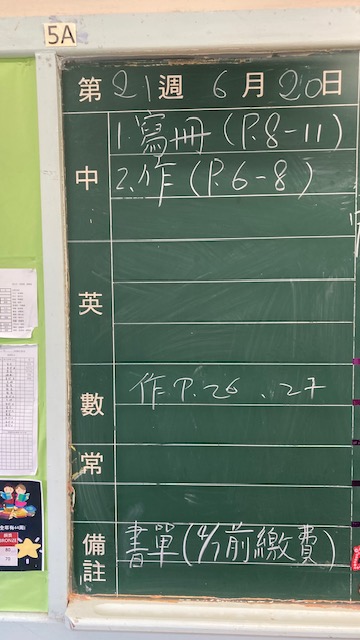 5A
第21週 6月20日
中
1.寫冊(P.8-11)
2.作(P.6-8)
英
數
作P.26、27
常
備註
書單(4/7前繳費)
BRONZE